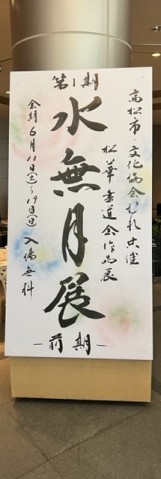 高松市文化協会むれ共催
松華書道会作品展
第1期
水無月展
―前期―
会期6月11日(土)〜19日(日) 入場無料